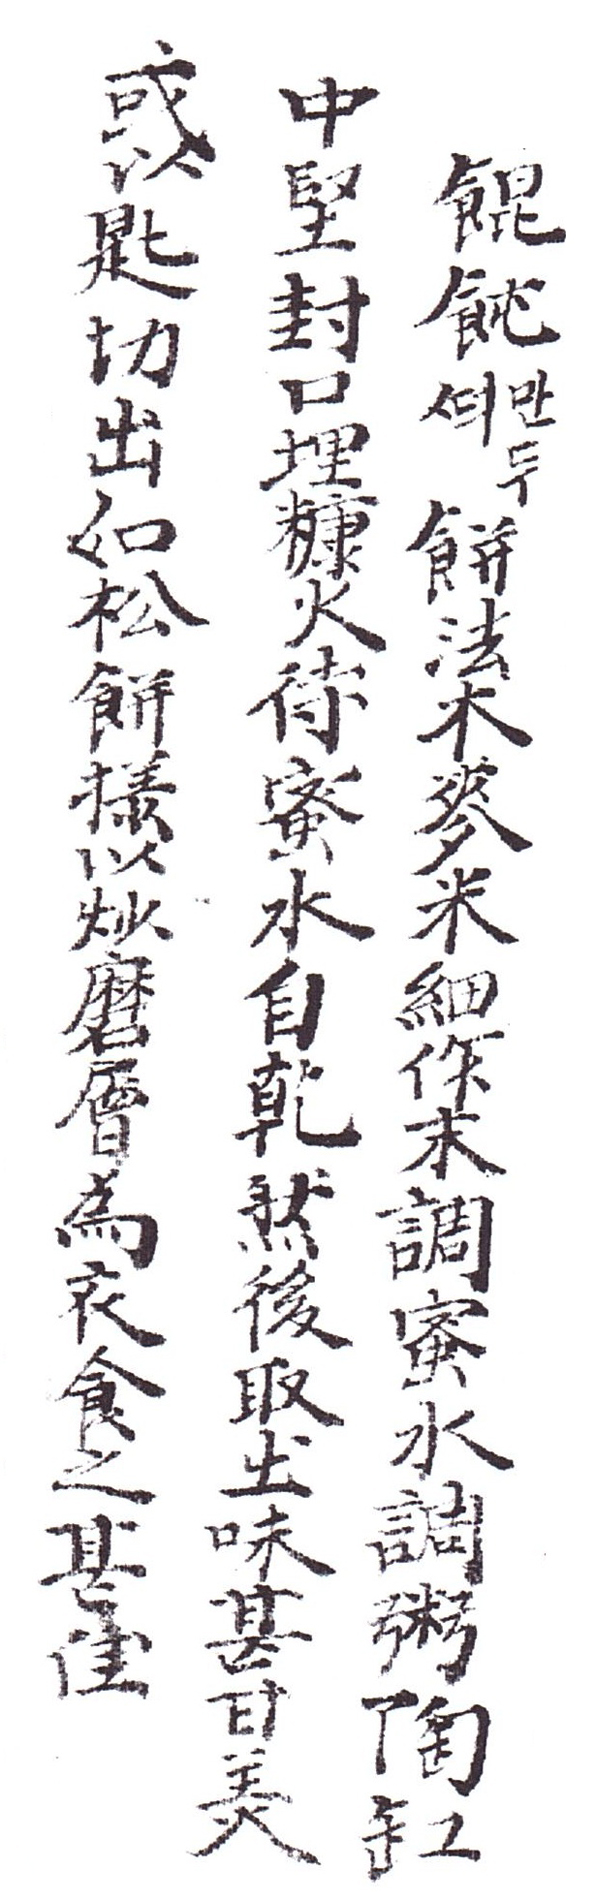 餛飩만두셔餠法木麥米細作末調蜜水調粥陶缸
中堅封口埋糠火待蜜水自乾然後取出味甚甘美
或以匙切出如松餠樣以炒磨層爲衣食之甚佳